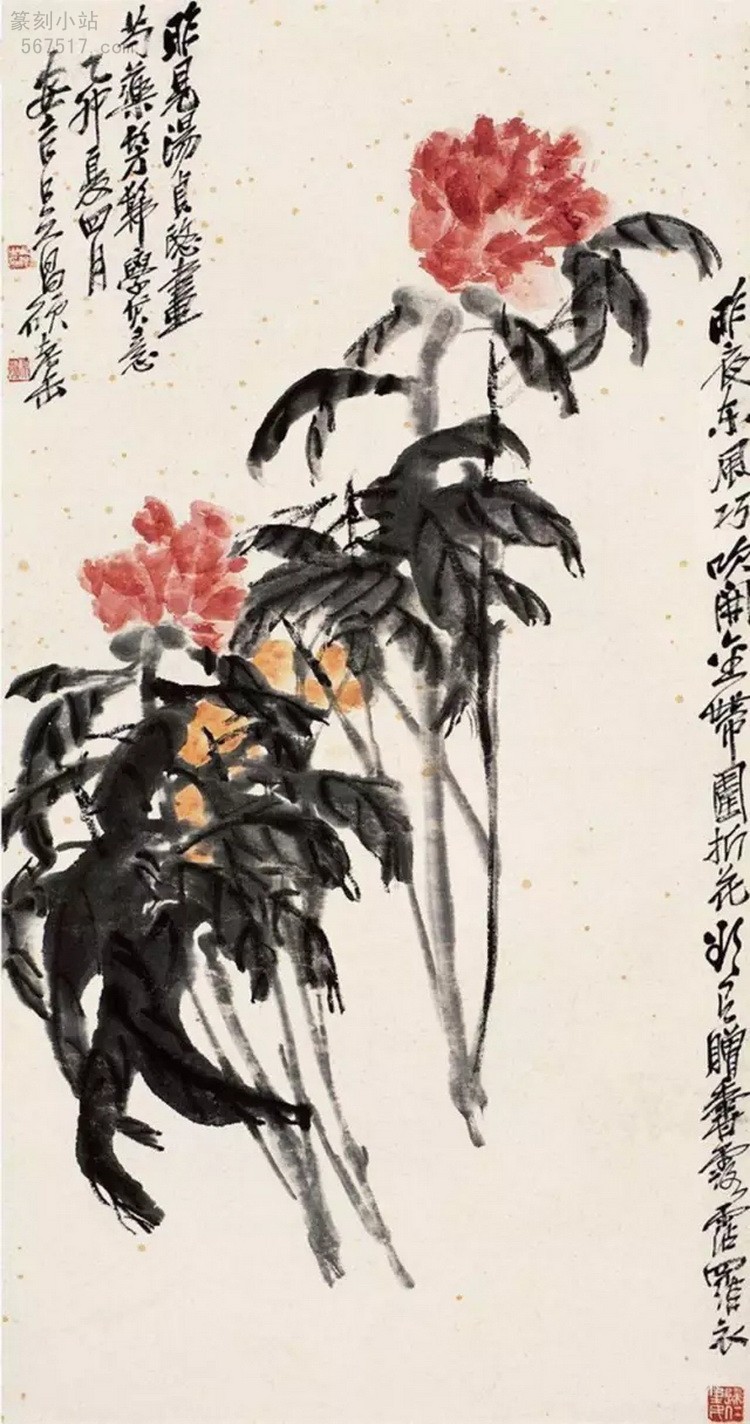 昨夜東風巧吹開金帶圍折花欲有贈香露霑羅衣
昨見湯貞愍畫
芍藥髣髴學其意
乙卯夏四月
安吉吳昌碩老缶
篆刻小站
567517.com